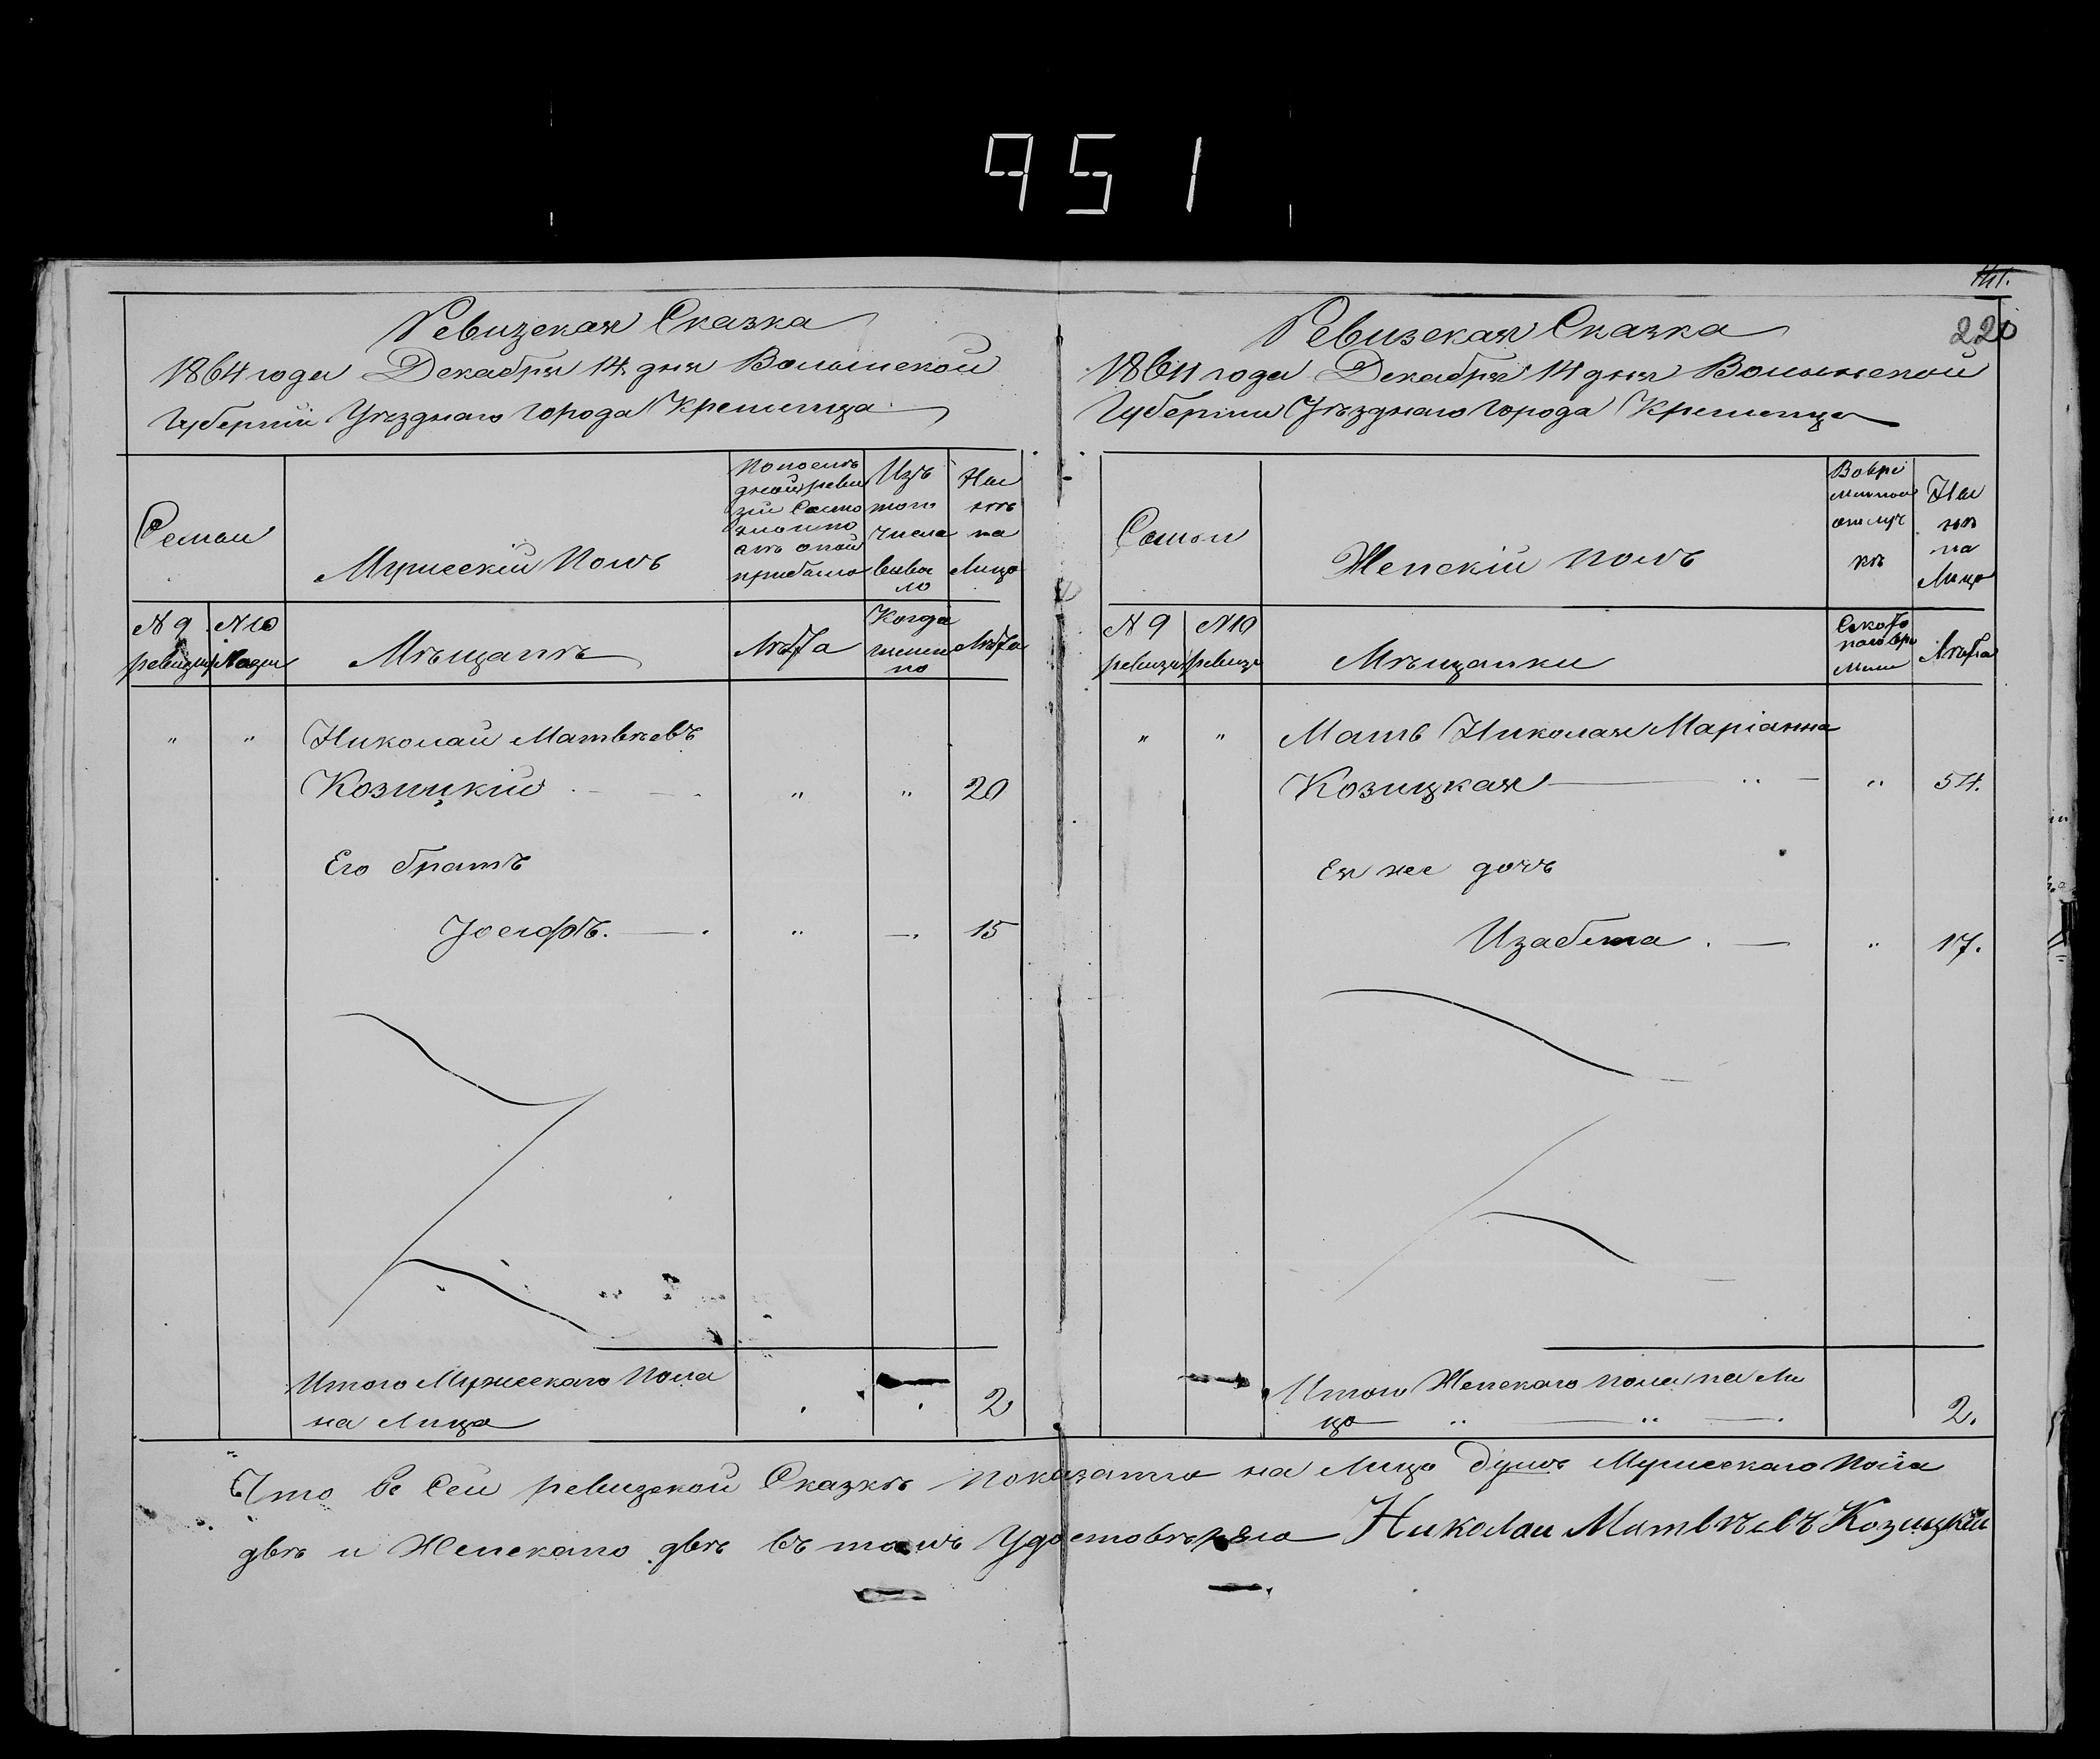 951
141.
220
Ревизская Сказка
1864 года Декабря 14 дня Волынской
Губерніи Уѣзднаго Города Кременца
Семьи
Мужескій Полъ
По послѣ
дней реви
зіи Состо
яло и по
слѣ оной
прибыло
Изъ
того
числа
выбы
ло
На
лѣ
на
Лицо
N 9
ревизіи
N 10
Мѣщанъ
Лѣта
Когда
именно
Лѣта
" " Николай Матвѣевъ
Козицкій " " 20
Его братъ
Іосифъ. — " —. 15
Итого Мужескаго Пола
на Лицо 2
Ревизская Сказка
1864 года Декабря 14 дня Волынской
Губерніи Уѣзднаго Города Кременца
Семьи
Женскій полъ
Во вре
менной
отлуч
кѣ
На
на
Лицо
N 9
ревизіи
N 10
ревизіи
Мѣщанки
Съ кото
раго вре
мени
Лѣта
" " Мать Николая Маріанна
Козицкая " 54.
Ея же дочь
Изабела . — " 17.
Итого Женскаго пола на Ли
цо 2.
Что въ Сей ревизской Сказкѣ показанно на Лицо душъ Мужескаго Пола
двѣ и Женскаго двѣ въ томъ Удостовѣряю Николай Матвѣевъ Козицкій